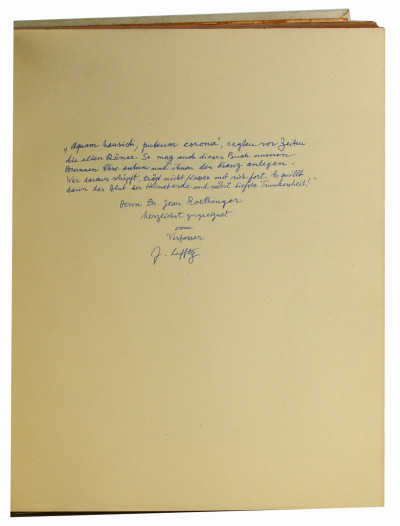 „Aquam hauristi, puteum corona", sagten vor Zeiten
die alten Römer. So mag auch dieses Buch unseren
Brunnen Ehre antun und ihnen den Kranz anlegen.
Wer daraus schöpft, trägt nicht Wasser mit sich fort. Es quillt
darin das Blut der Heimaterde und nährt tiefste Trunkenheit!"
Herrn Dr. Jean Roethinger
herzlichst zugeeignet
vom
Verfasser
J. Lefftz